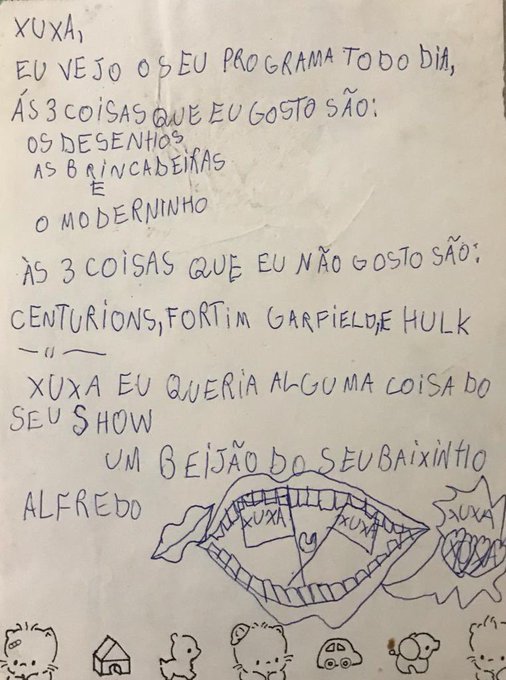 XUXA,
EU VEJO O SEU PROGRAMA TODO DIA,
ÁS 3 COISAS QUE EU GOSTO SÃO:
OS DESENHOS
AS BRINCADEIRAS
E
O MODERNINHO
ÀS 3 COISAS QUE EU NÃO GOSTO SÃO:
CENTURIONS, FORTIM GARFIELD, E HULK
— " —
XUXA EU QUERIA ALGUMA COISA DO
SEU SHOW
UM BEIJÃO DO SEU BAIXINHO
ALFREDO
XUXA XUXA
XUXA
XUXA